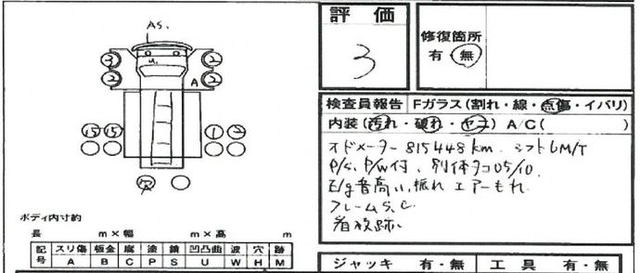 評価
3
修復箇所
有・無
検査員報告 Fガラス(割れ・線・点傷・イバリ)
内装(汚れ・破れ・ヤニ) A/C( )
オドメーター 815448km. シフト6M/T
P/S. P/W付. 別体タコ05/10.
E/g音高い, 振れ エアーもれ
フレームS, C.
看板跡.
As.
u.
3
2
2
2
A
15 15
1 2
ア
ボディ内寸約
長 m×幅 m×高 m
記号 スリ傷 板金 腐 塗 錆 凹凸曲 波 穴 跡
A B C P S U W H M
ジャッキ 有・無 工具 有・無